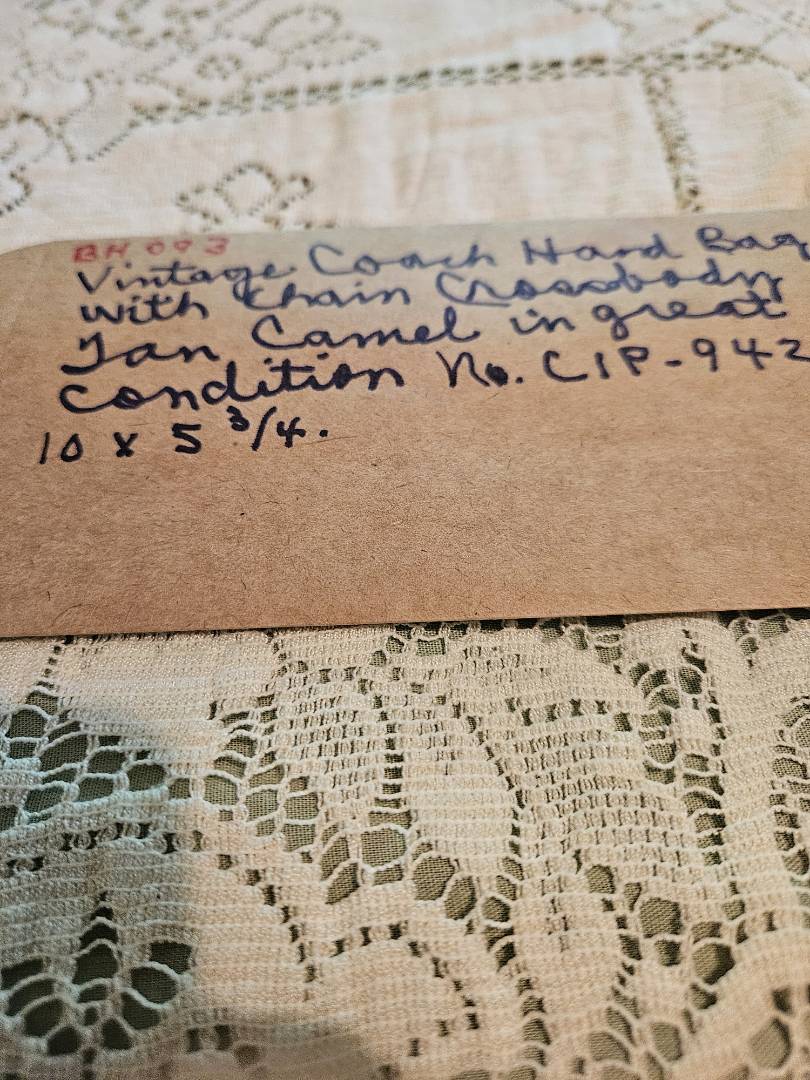 BH 093
Vintage Coach Hand Bag
with Chain Crossbody
Tan Camel in great
condition No. C1P-942
10 x 5 3/4.